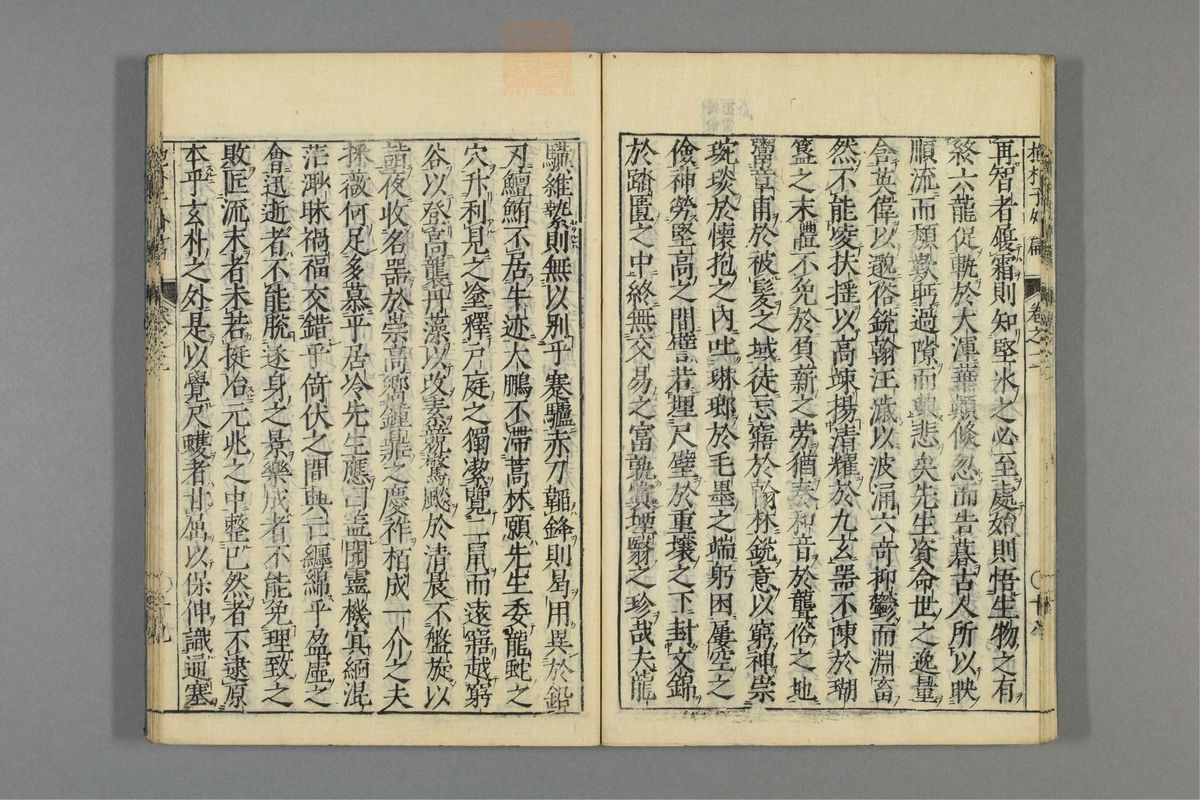 抱朴子外篇 卷之一
再智者履霜則知堅氷之必至處始則悟生物之有
終六龍促軌於大渾華顛倏忽而告暮古人所以映
順流而頹歎眄過隙而興悲矣先生資命世之逸量
含英偉以邈俗銳翰汪濊以波涌六竒抑鬱而淵畜
然不能凌扶搖以高竦揚清耀於九玄器不陳於瑚
簋之末體不免於負薪之勞猶奏和音於聾俗之地
鬻章甫於被髮之域徒忘寤於翰林銳意以窮神崇
琬琰於懷抱之內吐琳瑯於毛墨之端躬困屢空之
儉神勞堅高之間譬若埋尺璧於重壤之下封文錦
於沓匱之中終無交易之富孰賞堙翳之珍哉夫龍
驥維縶則無以别乎蹇驢赤刀韜鋒則曷用異於鉛
刃鱣鮪不居牛迹大鵬不滯蒿林願先生委龍蛇之
穴升利見之塗釋戶庭之獨潔覽二鼠而遠寤越窮
谷以登高襲丹藻以改素競驚飈於清晨不盤旋以
錯夜收名器於崇高饗鍾鼎之慶祚栢成一介之夫
採薇何足多慕乎居冷先生應曰葢聞靈機冥緬混
茫眇昧禍福交錯乎倚伏之間興亡纏綿乎盈虛之
會迅逝者不能脫逐身之景樂成者不能免理致之
敗匡流末者未若挺冶元兆之中整已然者不逮原
本乎玄朴之外是以覺尺蠖者甘屈以保伸識通塞